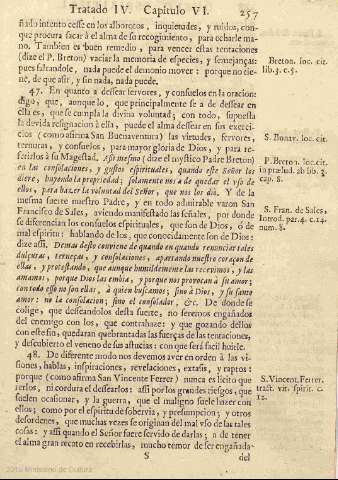 Tratado IV. Capitulo VI. 257
ñado intento cesse en los alborotos, inquietudes, y ruidos, con-
que procura sacar à el alma de su recogimiento, para echarle ma-
no. Tambien es buen remedio, para vencer estas tentaciones
(dize el P. Breton) vaciar la memoria de especies, y semejanças:
pues faltandole, nada puede el demonio mover: porque no tie-
ne, de que asir, y sin nada, nada puede.
Breton. loc. cit.
lib. 3. c. 5.
47. En quanto a dessear fervores, y consuelos en la oracion:
digo, que, aunque lo, que principalmente se a de dessear en
ella es, que se cumpla la divina voluntad; con todo, supuesta
la devida resignacion à ella, puede el alma dessear en sus exerci-
cios (como afirma San Buenaventura) las virtudes, fervores,
ternuras, y consuelos, para mayor gloria de Dios, y para re-
ferirlos à su Magestad. Assi mesmo (dize el mystico Padre Breton)
en las consolaciones, y gostos espirituales, quando este Señor los
diere, huyendo la propriedad; solamente nos a de quedar el vso de
ellos, para hazer la voluntad del Señor, que nos los dió. Y de la
mesma suerte nuestro Padre, y en todo admirable varon San
Francisco de Sales, aviendo manifestado las señales, por donde
se diferencian los consuelos espirituales, que son de Dios, ó de
mal espiritu: hablando de los, que conocidamente son de Dios:
dize assi, Demas desto conviene de quando en quando renunciar tales
dulçuras, ternezas, y consolaciones, apartando nuestro coraçon de
ellas, y protestando, que aunque humildemente las recevimos, y las
amamos: porque Dios las embia, y porque nos provocan à su amor;
con todo esso no son ellas, à quien buscamos; sino à Dios, y su santo
amor: no la consolacion; sino el consolador, &c. De donde se
colige, que desseandolos desta suerte, no seremos engañados
del enemigo con los, que contrahaze: y que gozando dellos
con este fin, quedaran quebrantadas las fuerças de las tentaciones,
y descubierto el veneno de sus astucias: con que será facil huirle.
S. Bonav. loc. cit.
P. Breton. loc. cit.
in prælud. ab lib. 3.
cap. 8.
S. Fran. de Sales,
Introd. par. 4. c. 14.
num. 8.
48. De diferente modo nos devemos aver en orden à las vi-
siones, hablas, inspiraciones, revelaciones, extasis, y raptos:
porque (como afirma San Vincente Ferrer) nunca es licito que-
rerlos, ni cordura el dessearlos: assi por los grandes riesgos, que
suelen ocasionar, y la guerra, que el maligno suele hazer con
ellos; como por el espiritu de sobervia, y presumpcion; y otros
desordenes, que muchas vezes se originan del mal vso de las tales
cosas: y assi quando el Señor fuere servido de darlas; a de tener
el alma gran recato en recebirlas, mucho temor de ser engañada
S. Vincent. Ferrer.
tract. vit. spirit. c.
12.
S
del
2010 Ministerio de Cultura